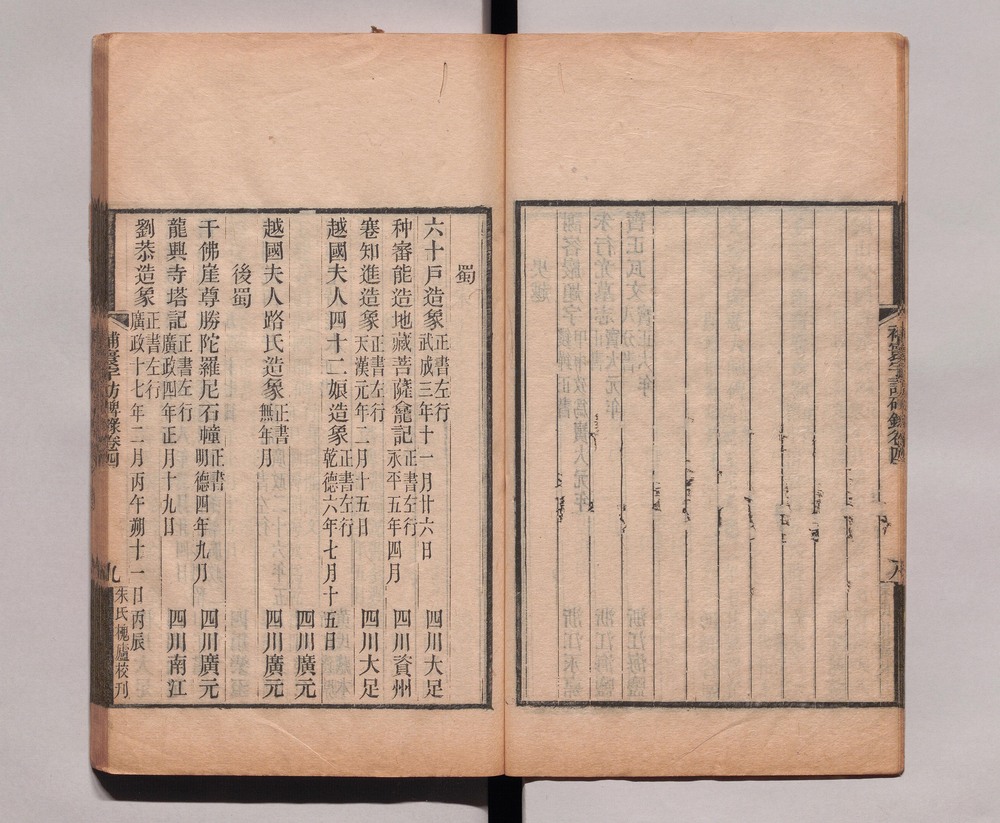 蜀
六十戶造象 正書左行 武成三年十一月廿六日 四川大足
种審能造地藏菩薩龕記 正書左行 永平五年四月 四川資州
蹇知進造象 正書左行 天漢元年二月十五日 四川大足
越國夫人四十二娘造象 正書左行 乾德六年七月十五日
四川廣元
越國夫人路氏造象 正書 無年月 四川廣元
後蜀
千佛崖尊勝陀羅尼石幢 正書 明德四年九月 四川廣元
龍興寺塔記 正書左行 廣政四年正月十九日 四川南江
劉恭造象 正書左行 廣政十七年二月丙午朔十一日丙辰
補寰宇訪碑錄卷四
九
朱氏槐廬校刊
補寰宇訪碑錄卷四
八